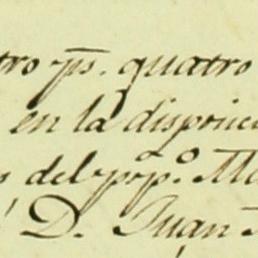 tro ps. quatro
en la disposici
del prop.º Ma
D. Juan